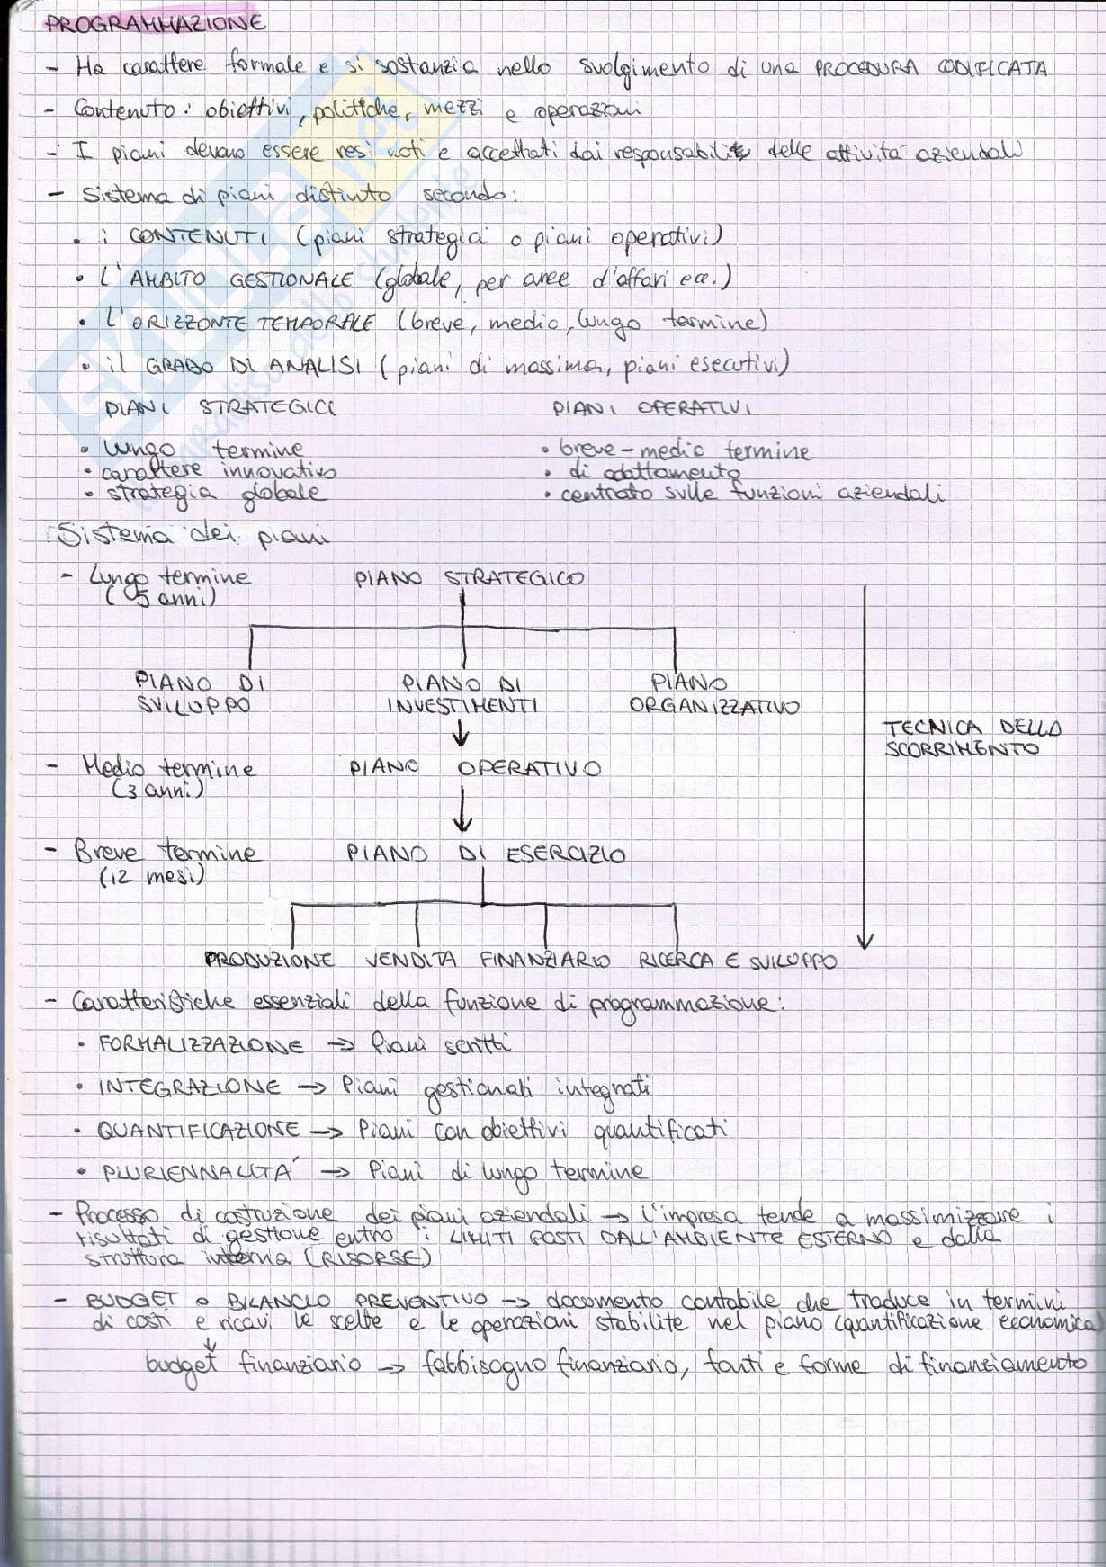 PROGRAMMAZIONE
- Ha carattere formale e si sostanzia nello svolgimento di una PROCEDURA CODIFICATA
- Contenuto: obiettivi, politiche, mezzi e operazioni
- I piani devono essere resi noti e accettati dai responsabili delle attività aziendali
- Sistema di piani distinto secondo:
• i CONTENUTI (piani strategici o piani operativi)
• L'AMBITO GESTIONALE (globale, per aree d'affari ecc.)
• L'ORIZZONTE TEMPORALE (breve, medio, lungo termine)
• il GRADO DI ANALISI (piani di massima, piani esecutivi)
PIANI STRATEGICI PIANI OPERATIVI
• lungo termine • breve-medio termine
• carattere innovativo • di adattamento
• strategia globale • centrato sulle funzioni aziendali
Sistema dei piani
- Lungo termine PIANO STRATEGICO
(5 anni)
PIANO DI PIANO DI PIANO
SVILUPPO INVESTIMENTI ORGANIZZATIVO
TECNICA DELLO
SCORRIMENTO
- Medio termine PIANO OPERATIVO
(3 anni)
- Breve termine PIANO DI ESERCIZIO
(12 mesi)
PRODUZIONE VENDITA FINANZIARIO RICERCA E SVILUPPO
- Caratteristiche essenziali della funzione di programmazione:
• FORMALIZZAZIONE → Piani scritti
• INTEGRAZIONE → Piani gestionali integrati
• QUANTIFICAZIONE → Piani con obiettivi quantificati
• PLURIENNALITA' → Piani di lungo termine
- Processo di costruzione dei piani aziendali → l'impresa tende a massimizzare i
risultati di gestione entro i LIMITI POSTI DALL'AMBIENTE ESTERNO e dalla
struttura interna (RISORSE)
- BUDGET o BILANCIO PREVENTIVO → documento contabile che traduce in termini
di costi e ricavi le scelte e le operazioni stabilite nel piano (quantificazione economica)
↓
budget finanziario → fabbisogno finanziario, fonti e forme di finanziamento